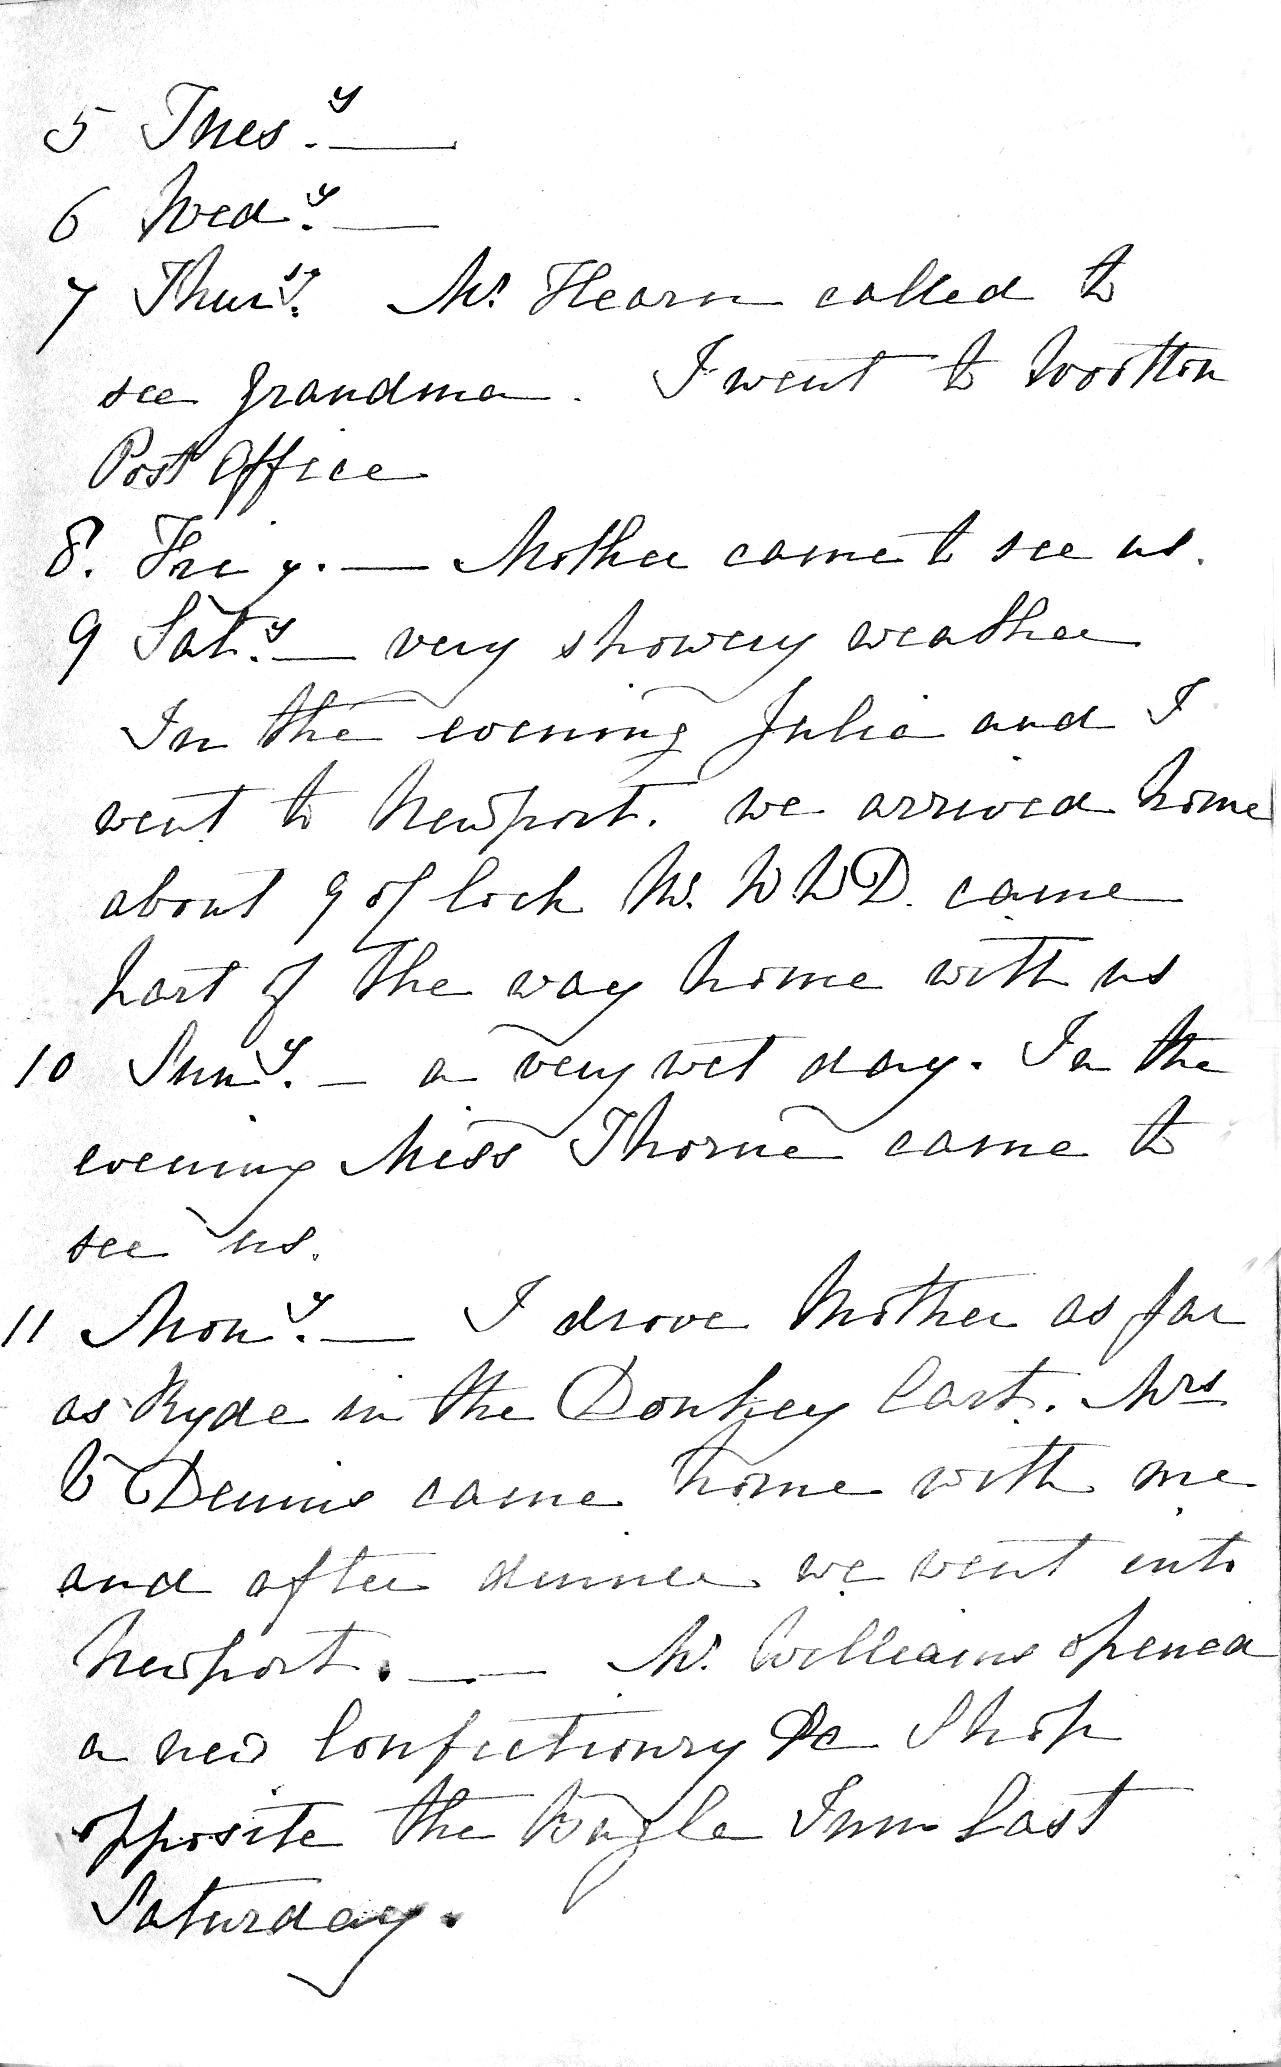 5 Tues.y —
6 Wed.y —
7 Thurs.y Mr. Hearn called to
see Grandma. I went to Wootton
Post Office
8. Fri y. — Mother came to see us.
9 Sat.y — very showery weather
In the evening Julia and I
went to Newport. we arrived home
about 9 o/Clock Mr. W.W.D. came
part of the way home with us
10 Sun.y — a very wet day. In the
evening Miss Thorne came to
see us.
11 Mon.y — I drove Mother as far
as Ryde in the Donkey Cart. Mrs
Dennis came home with me
and after dinner we went into
Newport. — Mr. Williams opened
a new Confectionry &c Shop
opposite the Bugle Inn last
Saturday.